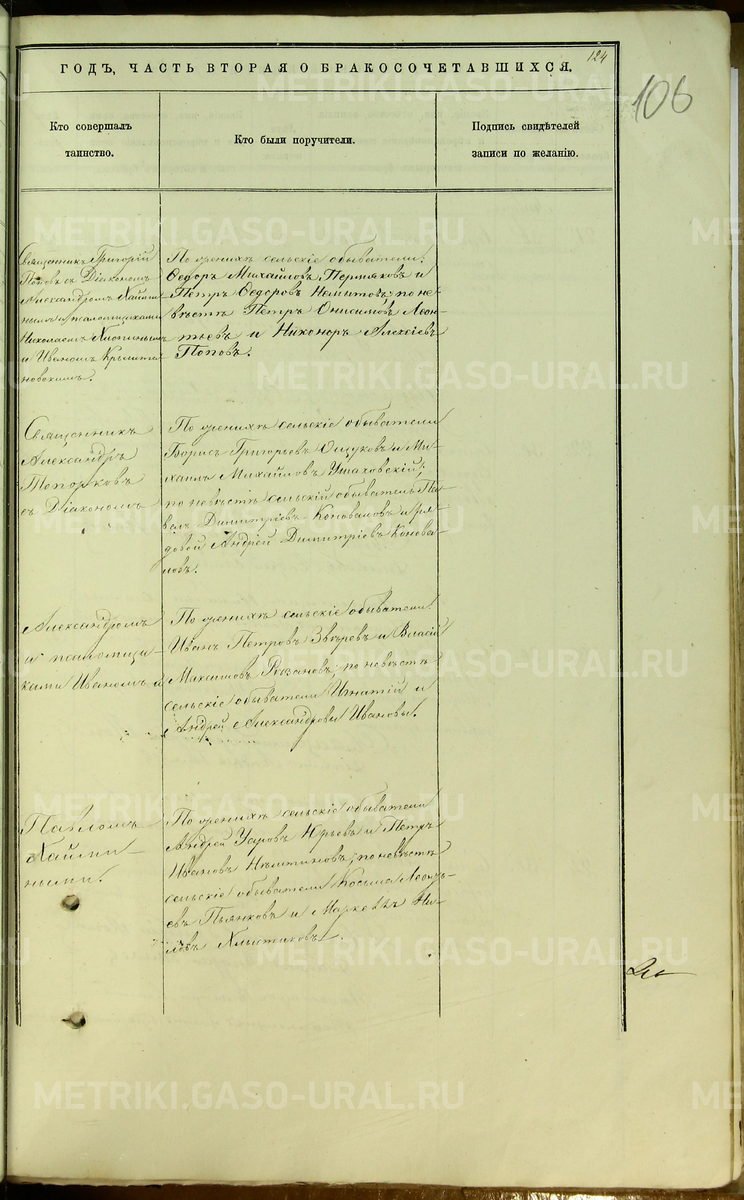 124
106
ГОДЪ, ЧАСТЬ ВТОРАЯ О БРАКОСОЧЕТАВШИХСЯ.
Кто совершалъ
таинство.
Кто были поручители.
Подпись свидѣтелей
записи по желанію.
Священникъ Григорій
Поповъ съ Діакономъ
Александромъ Хайми-
нымъ и псаломщиками
Николаемъ
и Иваномъ
новскимъ.
По женихѣ сельскіе обыватели:
Ѳедоръ Михайловъ Пермяковъ и
Петръ Ѳедоровъ по не-
вѣстѣ Петръ Онисимовъ Леон-
тьевъ и Никоноръ Алексѣевъ
Поповъ.
Священникъ
Александръ
Топорковъ
съ Діакономъ
По женихѣ сельскіе обыватели
Борисъ Григорьевъ и Ми-
хаилъ Михайловъ
по невѣстѣ сельскій обыватель Па-
велъ Димитріевъ Коноваловъ и ря-
довой Андрей Димитріевъ Конова-
ловъ.
Александромъ
и псаломщи-
ками Иваномъ и
По женихѣ сельскіе обыватели
Иванъ Петровъ Звѣревъ и Власій
Михайловъ Розановъ; по невѣстѣ
сельскіе обыватели Игнатій и
Андрей Александровы Ивановы.
Павломъ
Хайми-
ными.
По женихѣ сельскіе обыватели
Андрей Юрьевъ и Петръ
Ивановъ по невѣстѣ
сельскіе обыватели Косьма Леонть-
евъ Пьянковъ и Маркеллъ Ни-
ловъ Хлыстиковъ.
METRIKI.GASO-URAL.RU